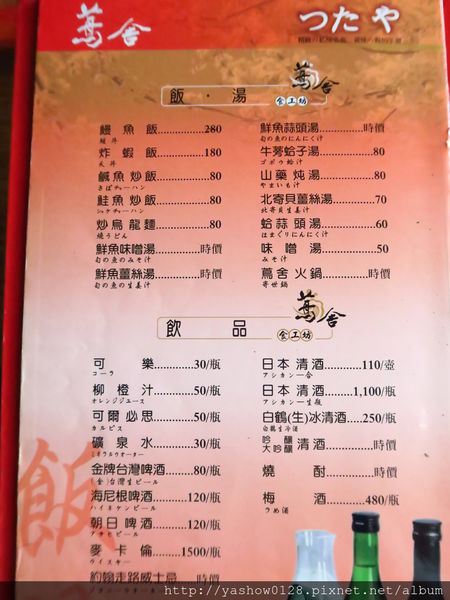 蔦舍
つたや
飯・湯
蔦舍
食工坊
鰻魚飯 280
鰻丼
炸蝦飯 180
天丼
鹹魚炒飯 80
さばチャーハン
鮭魚炒飯 80
シャケチャーハン
炒烏龍麵 80
焼うどん
鮮魚味噌湯 時價
旬の魚のみそ汁
鮮魚薑絲湯 時價
旬の魚の生姜汁
鮮魚蒜頭湯 時價
旬の魚のにんにく汁
牛蒡蛤子湯 80
ゴボウ蛤汁
山藥炖湯 80
やまいも汁
北寄貝薑絲湯 70
北寄貝生姜汁
蛤蒜頭湯 60
はまぐりにんにく汁
味噌湯 50
みそ汁
蔦舍火鍋 時價
寄世鍋
飲品
蔦舍
食工坊
可樂 30/瓶
コーラ
柳橙汁 50/瓶
オレンジジュース
可爾必思 50/瓶
カルピス
礦泉水 30/瓶
ミネラルウオーター
金牌台灣啤酒 80/瓶
(金)台灣生ビール
海尼根啤酒 120/瓶
ハイネケンビール
朝日啤酒 120/瓶
アサヒビール
麥卡倫 1500/瓶
ウイスキー
約翰走路威士忌 時價
日本清酒 110/壺
アシカン一合
日本清酒 1,100/瓶
アシカン一生瓶
白鶴(生)冰清酒 250/瓶
白鶴生冷酒
吟釀
大吟釀 清酒 時價
燒酎 時價
梅酒 480/瓶
うめ酒
飯
http://yashow0128.pixnet.net/album